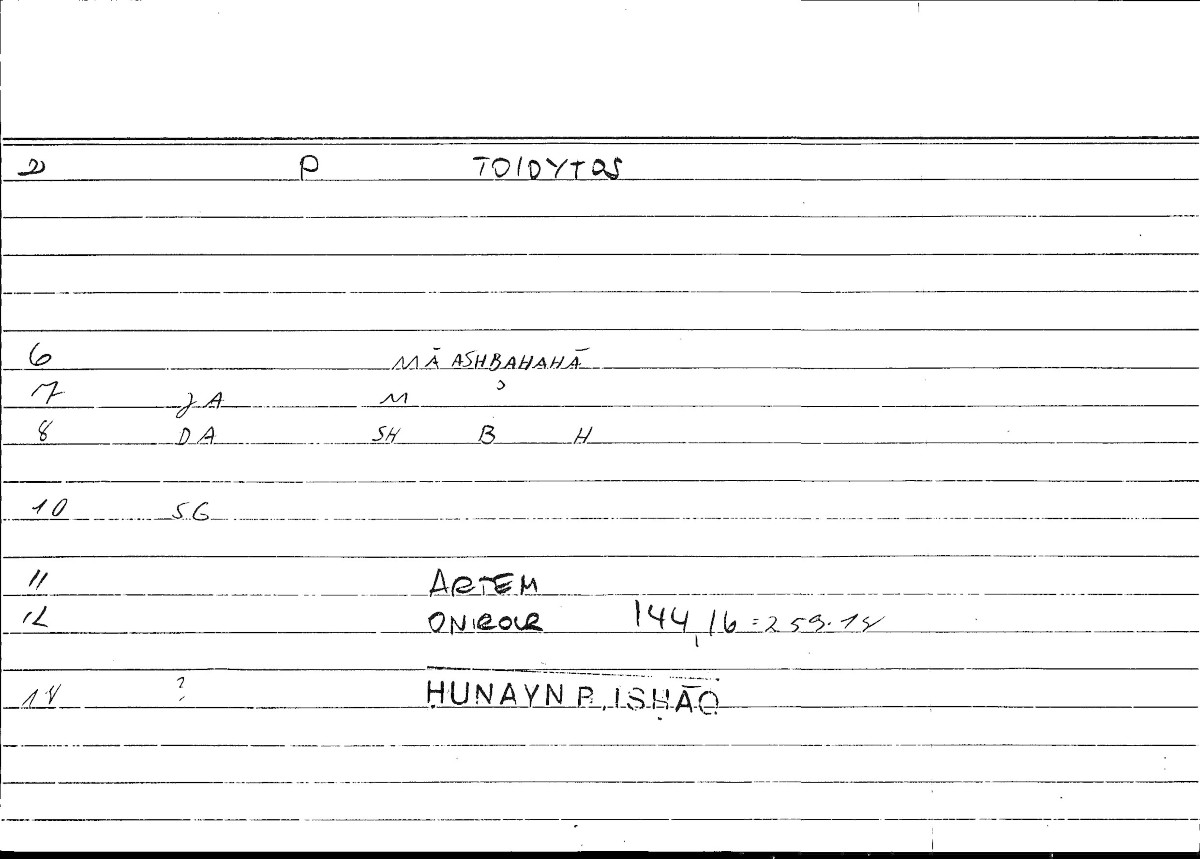 2) P TOIDYTOS
6 MĀ ASHBAHAHĀ
7 JA M ʾ
8 DA SH B H
10 SG
11 ARTEM
12 ONIROCR 144,16 = 259.18
14 ? ḤUNAYN B. ISḤĀQ